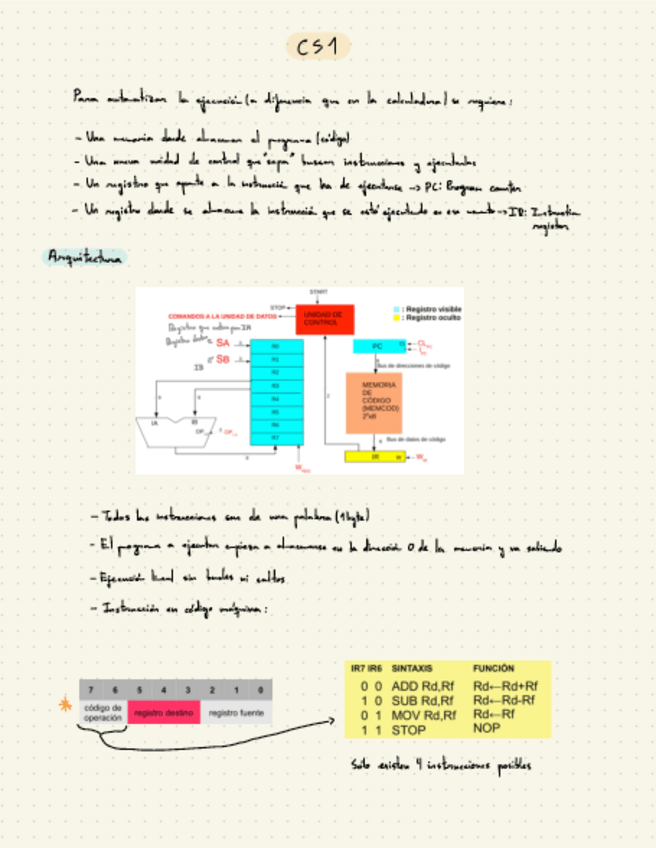 CS1
Para automatizar la ejecución (a diferencia que en la calculadora) se requiere:
- Una memoria donde almacenar el programa (código)
- Una nueva unidad de control que "sepa" buscar instrucciones y ejecutarlas
- Un registro que apunte a la instrucción que ha de ejecutarse -> PC: Program counter
- Un registro donde se almacena la instrucción que se está ejecutando en ese momento -> IR: Instruction
register
Arquitectura
START
STOP
COMANDOS A LA UNIDAD DE DATOS
UNIDAD DE
CONTROL
: Registro visible
: Registro oculto
Registro que entra por IA
Registro
SA
SB
IB
R0
R1
R2
R3
R4
R5
R6
R7
IA
IB
PC
Bus de direcciones de código
MEMORIA
DE
CÓDIGO
(MEMCOD)
Bus de datos de código
IR
- Todas las instrucciones son de una palabra (1 byte)
- El programa a ejecutar empieza a almacenarse en la dirección 0 de la memoria y va subiendo
- Ejecución lineal sin bucles ni saltos
- Instrucción en código máquina:
7 6 5 4 3 2 1 0
código de
operación
registro destino
registro fuente
IR7 IR6 SINTAXIS FUNCIÓN
0 0 ADD Rd,Rf Rd←Rd+Rf
1 0 SUB Rd,Rf Rd←Rd-Rf
0 1 MOV Rd,Rf Rd←Rf
1 1 STOP NOP
Sólo existen 4 instrucciones posibles